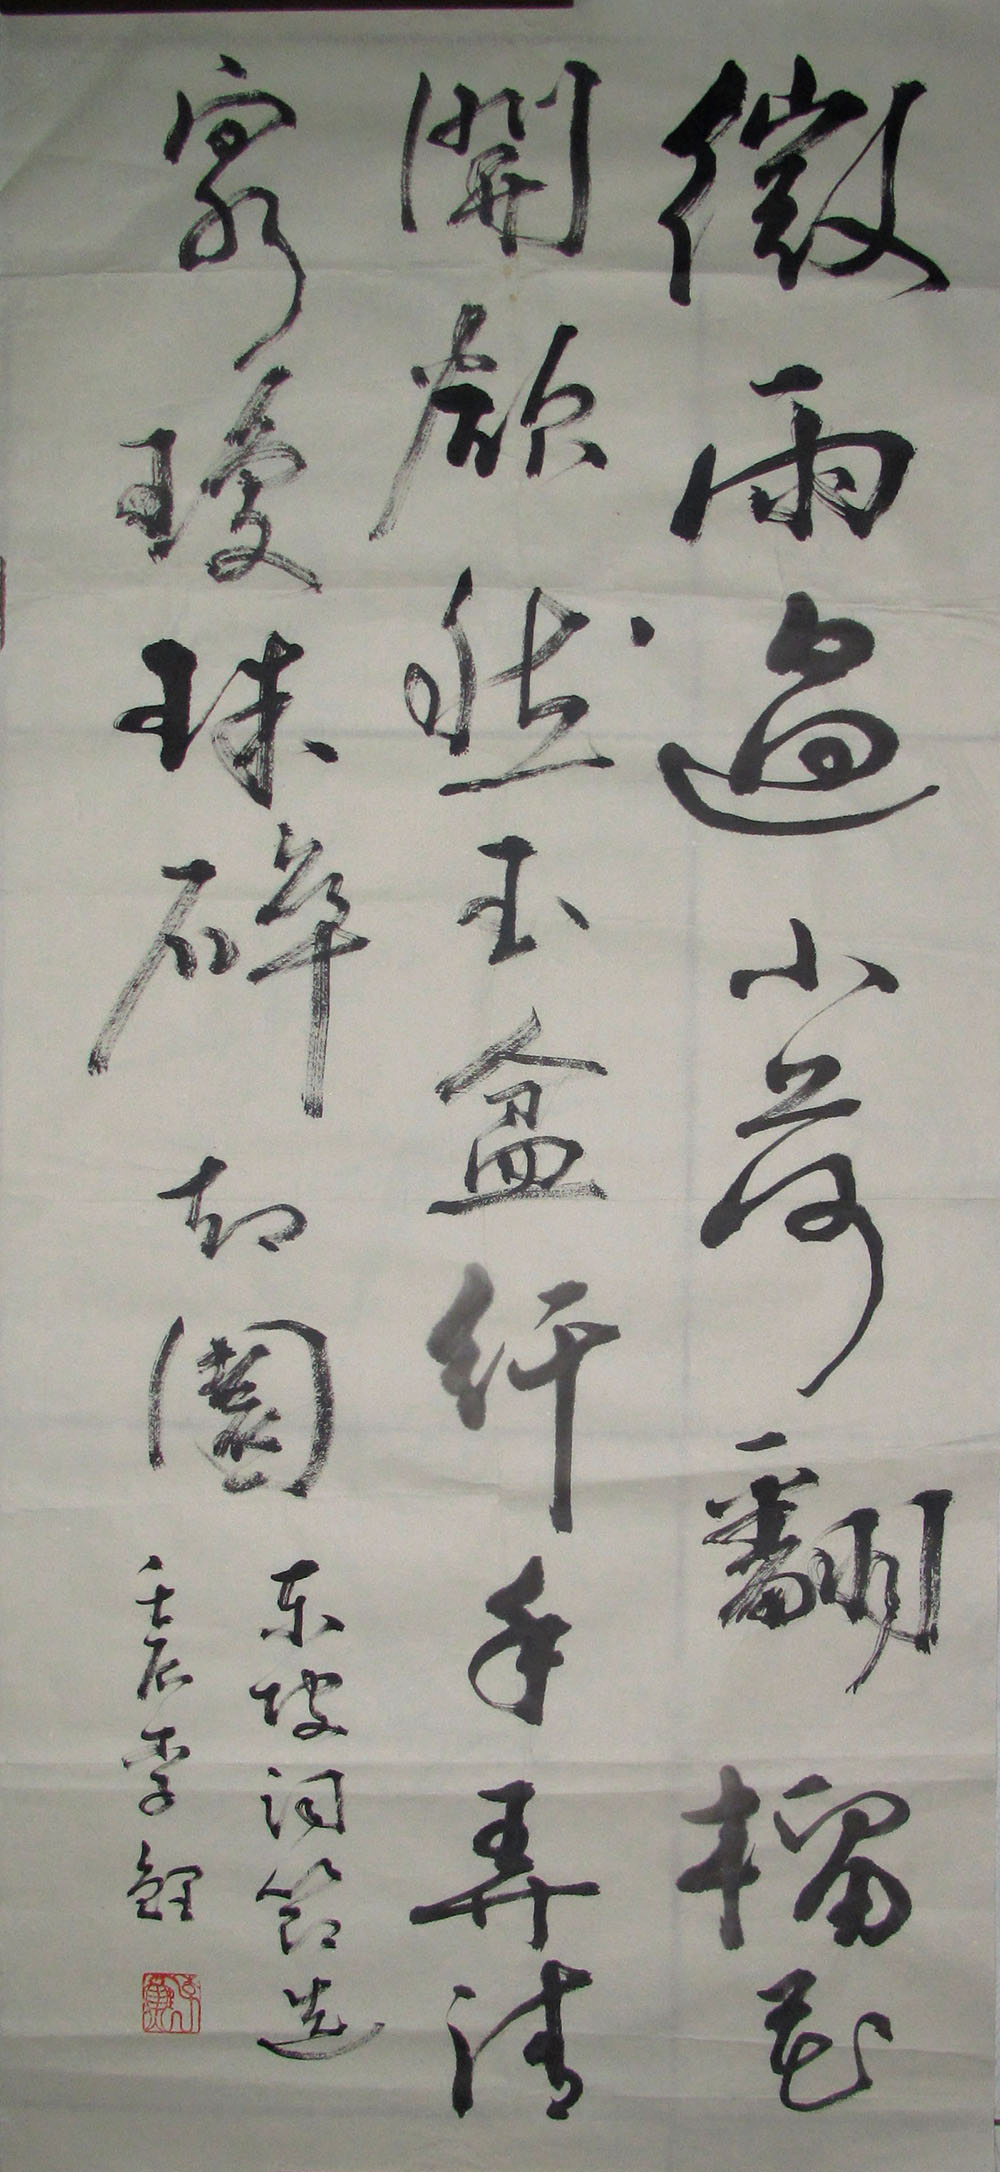 微雨過小荷翻榴花
開欲然玉盆纤手弄清
泉瓊珠碎却圓
东坡词节选
壬辰李